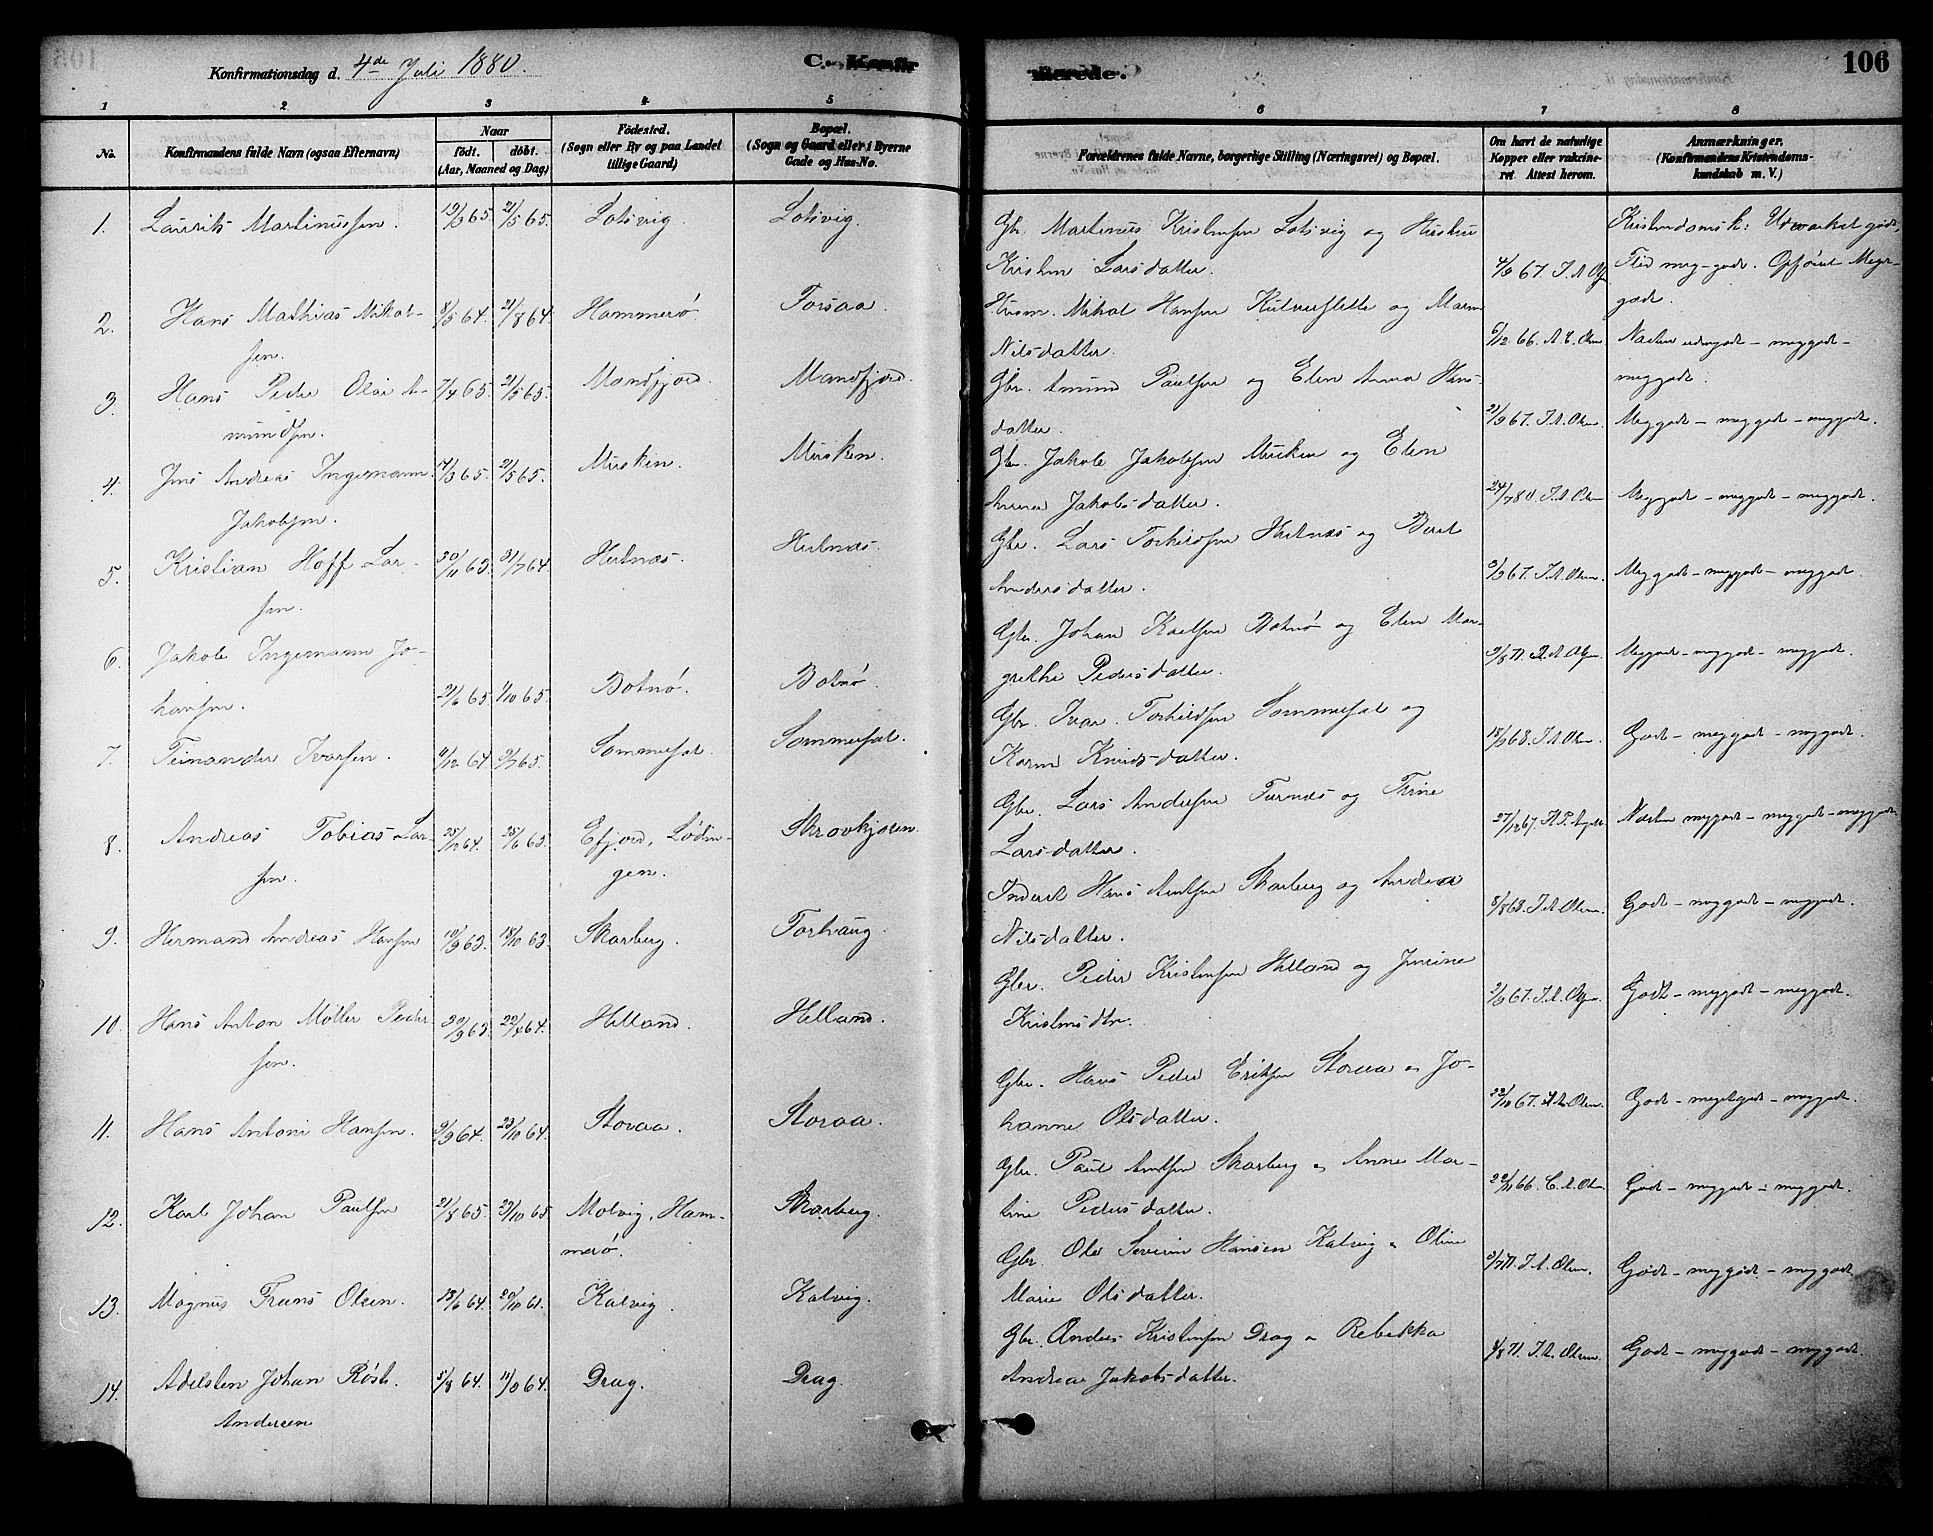 Konfirmationsdag d. 4de Juli 1880.
C. Konfir
merede.
106
1 2 3 4 5 6 7 8
No.
Konfirmandens fulde Navn (ogsaa Efternavn)
Naar
födt. döbt.
(Aar, Maaned og Dag)
Födested.
(Sogn eller By og paa Landet
tillige Gaard)
Bopæl.
(Sogn og Gaard eller i Byerne
Gade og Hus-No.
Forældrenes fulde Navne, borgerlige Stilling (Næringsvei) og Bopæl.
Om havt de naturlige
Kopper eller vakcine-
ret. Attest herom.
Anmærkninger.
(Konfirmandens Kristendoms-
kundskab m. V.)
1. Laurits Martinussen. 19/3 65. 21/5 65. Lotsvig. Lotsvig.
Gbr. Martinus Kristensen Lotsvig og Hustru
Kristin Larsdatter.
Kristendomsk: Udmærket godt,
Flid meg-godt. Opförsel Meg-
godt.
2. Hans Mathias Mikal-
sen.
8/5 64. 21/8 64. Hammerö. Torsaa.
Husm. Mikal Hansen og Maren
Nilsdatter.
6/12 66. Olsen Næsten udmgodt - meggodt -
meggodt.
3. Hans Peder Olai A-
mundsen.
7/4 65. 21/5 65. Mandfjord. Mandfjord.
Gbr. Amund Paulsen og Elen Anna Hans-
datter.
21/9 67. I. A. Olsen. Meggodt - meggodt - meggodt.
4. Jens Andreas Ingemann
Jakobsen.
17/3 65. 21/5 65. Musken. Musken.
Gbr. Jakob Jakobsen Musken og Elen
Anna Jakobsdatter.
24/7 80. I. A. Olsen Meggodt - meggodt - meggodt.
5. Kristian Hoff Lar-
sen.
30/11 63. 31/7 64. Helnæs. Helnæs.
Gbr. Lars Torkildsen Helnæs og Beret
Andersdatter.
3/9 67. I. A. Olsen. Meggodt - meggodt - meggodt.
6. Jakob Ingemann Jo-
hansen.
21/6 65. 1/10 65. Botnö. Botnö.
Gbr. Johan Karlsen Botnö og Elen Mar-
grethe Pedersdatter.
Meggodt - meggodt - meggodt.
7. Feinander Ivarsen. 11/12 64. 9/7 65. Sommersæt. Sommersæt.
Gbr. Ivar Torkildsen Sommersæt og
Karen Knudsdatter.
18/9 68. I. A. Olsen. Godt - meggodt - meggodt.
8. Andreas Tobias Lar-
sen.
25/12 64. 25/6 65. Efjord, Lödin-
gen.
Skrovkjosen.
Gbr. Lars Andersen Furnes og Trine
Larsdatter.
27/12 67. Næsten meggodt - meggodt - meggodt.
9. Hermand Andreas Hansen 10/9 63. 18/10 63. Skarberg. Forhaug.
Inderst Hans Arntsen Skarberg og Andrea
Nilsdatter.
8/8 68. I. A. Olsen. Godt - meggodt - meggodt.
10. Hans Anton Möller Peder
sen.
30/9 63. 22/4 64. Helland. Helland.
Gbr. Peder Kristensen Helland og Jensine
Kristensdtr.
2/9 67. I. A. Olsen. Godt - meggodt - meggodt.
11. Hans Antoni Hansen. 9/9 64. 23/10 64. Storaa. Storaa.
Gbr. Hans Peder Eriksen Storaa & Jo-
hanne Olsdatter.
22/10 67. Olsen. Godt - megetgodt - meggodt.
12. Karl Johan Paulsen 21/8 65. 23/10 65. Molvig, Ham-
merö.
Skarberg.
Gbr. Paul Arntsen Skarberg & Anne Mar-
tine Pedersdatter.
Godt - meggodt - meggodt.
13. Magnus Frans Olsen. 13/6 64. 20/10 61. Kalvig. Kalvig.
Gbr. Ole Severin Hansen Kalvig & Oline
Marie Olsdatter.
3/7 71. I. A. Olsen. Godt - meggodt - meggodt.
14. Adelsten Johan Rösk
Andersen
5/8 64. Drag. Drag.
Gbr. Anders Kristensen Drag & Rebekka
Andrea Jakobsdatter.
4/8 71. I. A. Olsen. Godt - meggodt - meggodt.